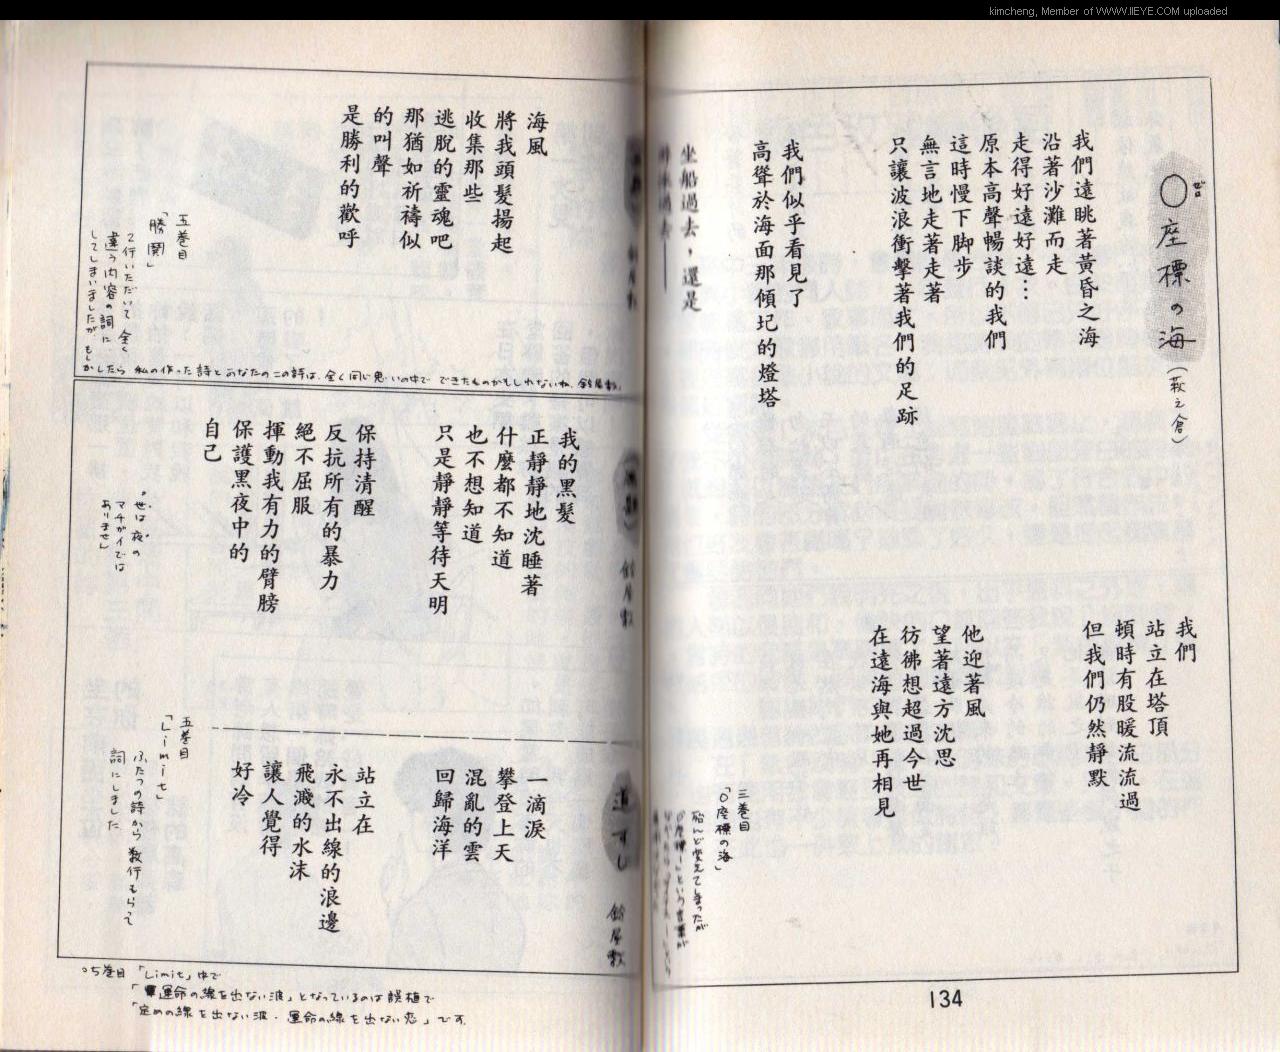 kimcheng, Member of WWW.IIEYE.COM uploaded
〇座標の海
ゼロ
(萩之倉)
我們遠眺著黃昏之海
沿著沙灘而走
走得好遠好遠…
原本高聲暢談的我們
這時慢下脚步
無言地走著走著
只讓波浪衝擊著我們的足跡
我們似乎看見了
高聳於海面那傾圮的燈塔
坐船過去，還是
我們
站立在塔頂
頓時有股暖流流過
但我們仍然靜默
他迎著風
望著遠方沈思
彷彿想超過今世
在遠海與她再相見
三巻目
「〇座標の海」
殆んど変えてしまったが
134
海風
將我頭髮揚起
收集那些
逃脫的靈魂吧
那猶如祈禱似
的叫聲
是勝利的歡呼
五巻目
「勝閧」
2行いただいて全く
違う内容の詞に
してしまいましたが、もし
かしたら 私の作った詩とあなたのこの詩は、全く同じ思いの中で できたものかもしれないね、鈴屋敷。
鈴屋敷
我的黑髮
正靜靜地沈睡著
什麼都不知道
也不想知道
只是靜靜等待天明
保持清醒
反抗所有的暴力
絕不屈服
揮動我有力的臂膀
保護黑夜中的
自己
"世は"夜の
マチガイでは
ありません
道すじ
鈴屋敷
一滴淚
攀登上天
混亂的雲
回歸海洋
站立在
永不出線的浪邊
飛濺的水沫
讓人覺得
好冷
五巻目
「Limit」
ふたつの詩から数行もらって
詞にしました
○5巻目 「Limit」中で
「運命の線を出ない波」となっているのは誤植で
「定めの線を出ない波・運命の線を出ない恋」です。